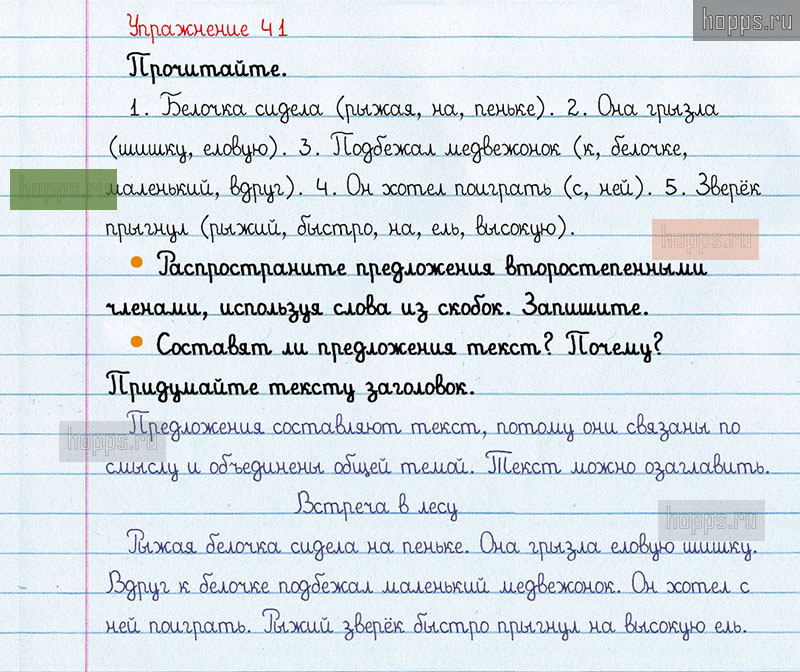 hopps.ru
Упражнение 41
Прочитайте.
1. Белочка сидела (рыжая, на, пеньке). 2. Она грызла
(шишку, еловую). 3. Подбежал медвежонок (к, белочке,
hopps.ru маленький, вдруг). 4. Он хотел поиграть (с, ней). 5. Зверёк
прыгнул (рыжий, быстро, на, ель, высокую).
hopps.ru
• Распространите предложения второстепенными
членами, используя слова из скобок. Запишите.
• Составят ли предложения текст? Почему?
Придумайте тексту заголовок.
Предложения составляют текст, потому они связаны по
hopps.ru
смыслу и объединены общей темой. Текст можно озаглавить.
Встреча в лесу
hopps.ru
Рыжая белочка сидела на пеньке. Она грызла еловую шишку.
Вдруг к белочке подбежал маленький медвежонок. Он хотел с
ней поиграть. Рыжий зверёк быстро прыгнул на высокую ель.